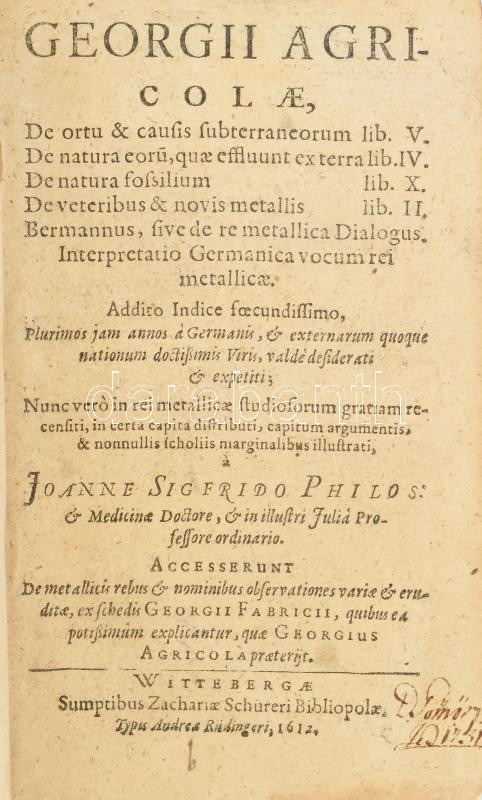 GEORGII AGRI-
COLÆ,
De ortu & causis subterraneorum lib. V.
De natura eorũ, quæ effluunt ex terra lib. IV.
De natura fossilium lib. X.
De veteribus & novis metallis lib. II.
Bermannus, sive de re metallica Dialogus.
Interpretatio Germanica vocum rei
metallicæ.
Addito Indice fœcundissimo,
Plurimos jam annos à Germanis, & externarum quoque
nationum doctissimis Viris, valdè desiderati
& expetiti;
darabanth
Nunc verò in rei metallicæ studiosorum gratiam re-
censiti, in certa capita distributi, capitum argumentis,
& nonnullis scholiis marginalibus illustrati,
à
JOANNE SIGFRIDO PHILOS:
& Medicinæ Doctore, & in illustri Juliâ Pro-
fessore ordinario.
ACCESSERUNT
De metallicis rebus & nominibus observationes variæ & eru-
ditæ, ex schedis GEORGII FABRICII, quibus ea
potissimùm explicantur, quæ GEORGIUS
AGRICOLA præterijt.
WITTEBERGÆ
Sumptibus Zachariæ Schüreri Bibliopolæ.
Typis Andreæ Rüdingeri, 1612.